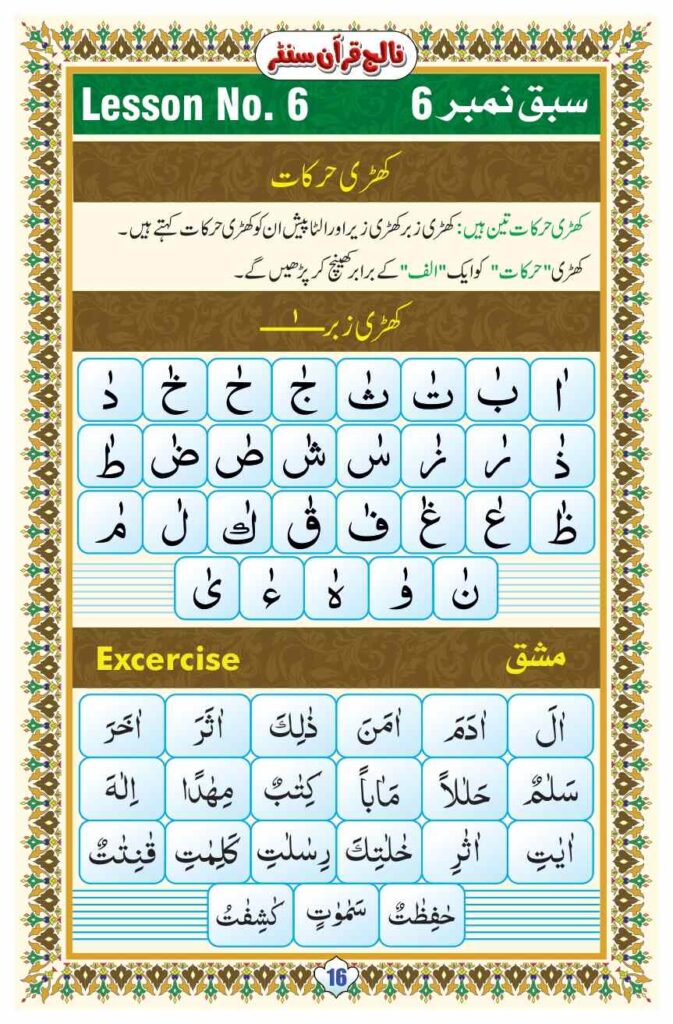 نالج قرآن سنٹر
Lesson No. 6 سبق نمبر 6
کھڑی حرکات
کھڑی حرکات تین ہیں: کھڑی زبر کھڑی زیر اور الٹا پیش ان کو کھڑی حرکات کہتے ہیں۔
کھڑی "حرکات" کو ایک "الف" کے برابر کھینچ کر پڑھیں گے۔
کھڑی زبر ـــٰـــ
اٰ بٰ تٰ ثٰ جٰ حٰ خٰ دٰ
ذٰ رٰ زٰ سٰ شٰ صٰ ضٰ طٰ
ظٰ عٰ غٰ فٰ قٰ كٰ لٰ مٰ
نٰ وٰ هٰ ءٰ یٰ
Excercise مشق
اٰلَ اٰدَمَ اٰمَنَ ذٰلِكَ اٰثَرَ اٰخَرَ
سَلٰمٌ حَلٰلاً مَاٰباً كِتٰبٌ مِهٰدًا اِلٰهَ
اٰيٰتِ اٰثٰرِ خٰلٰتِكَ رِسٰلٰتِ كَلِمٰتِ قٰنِتٰتٌ
حٰفِظٰتٌ سَمٰوٰتٍ كٰشِفٰتُ
16